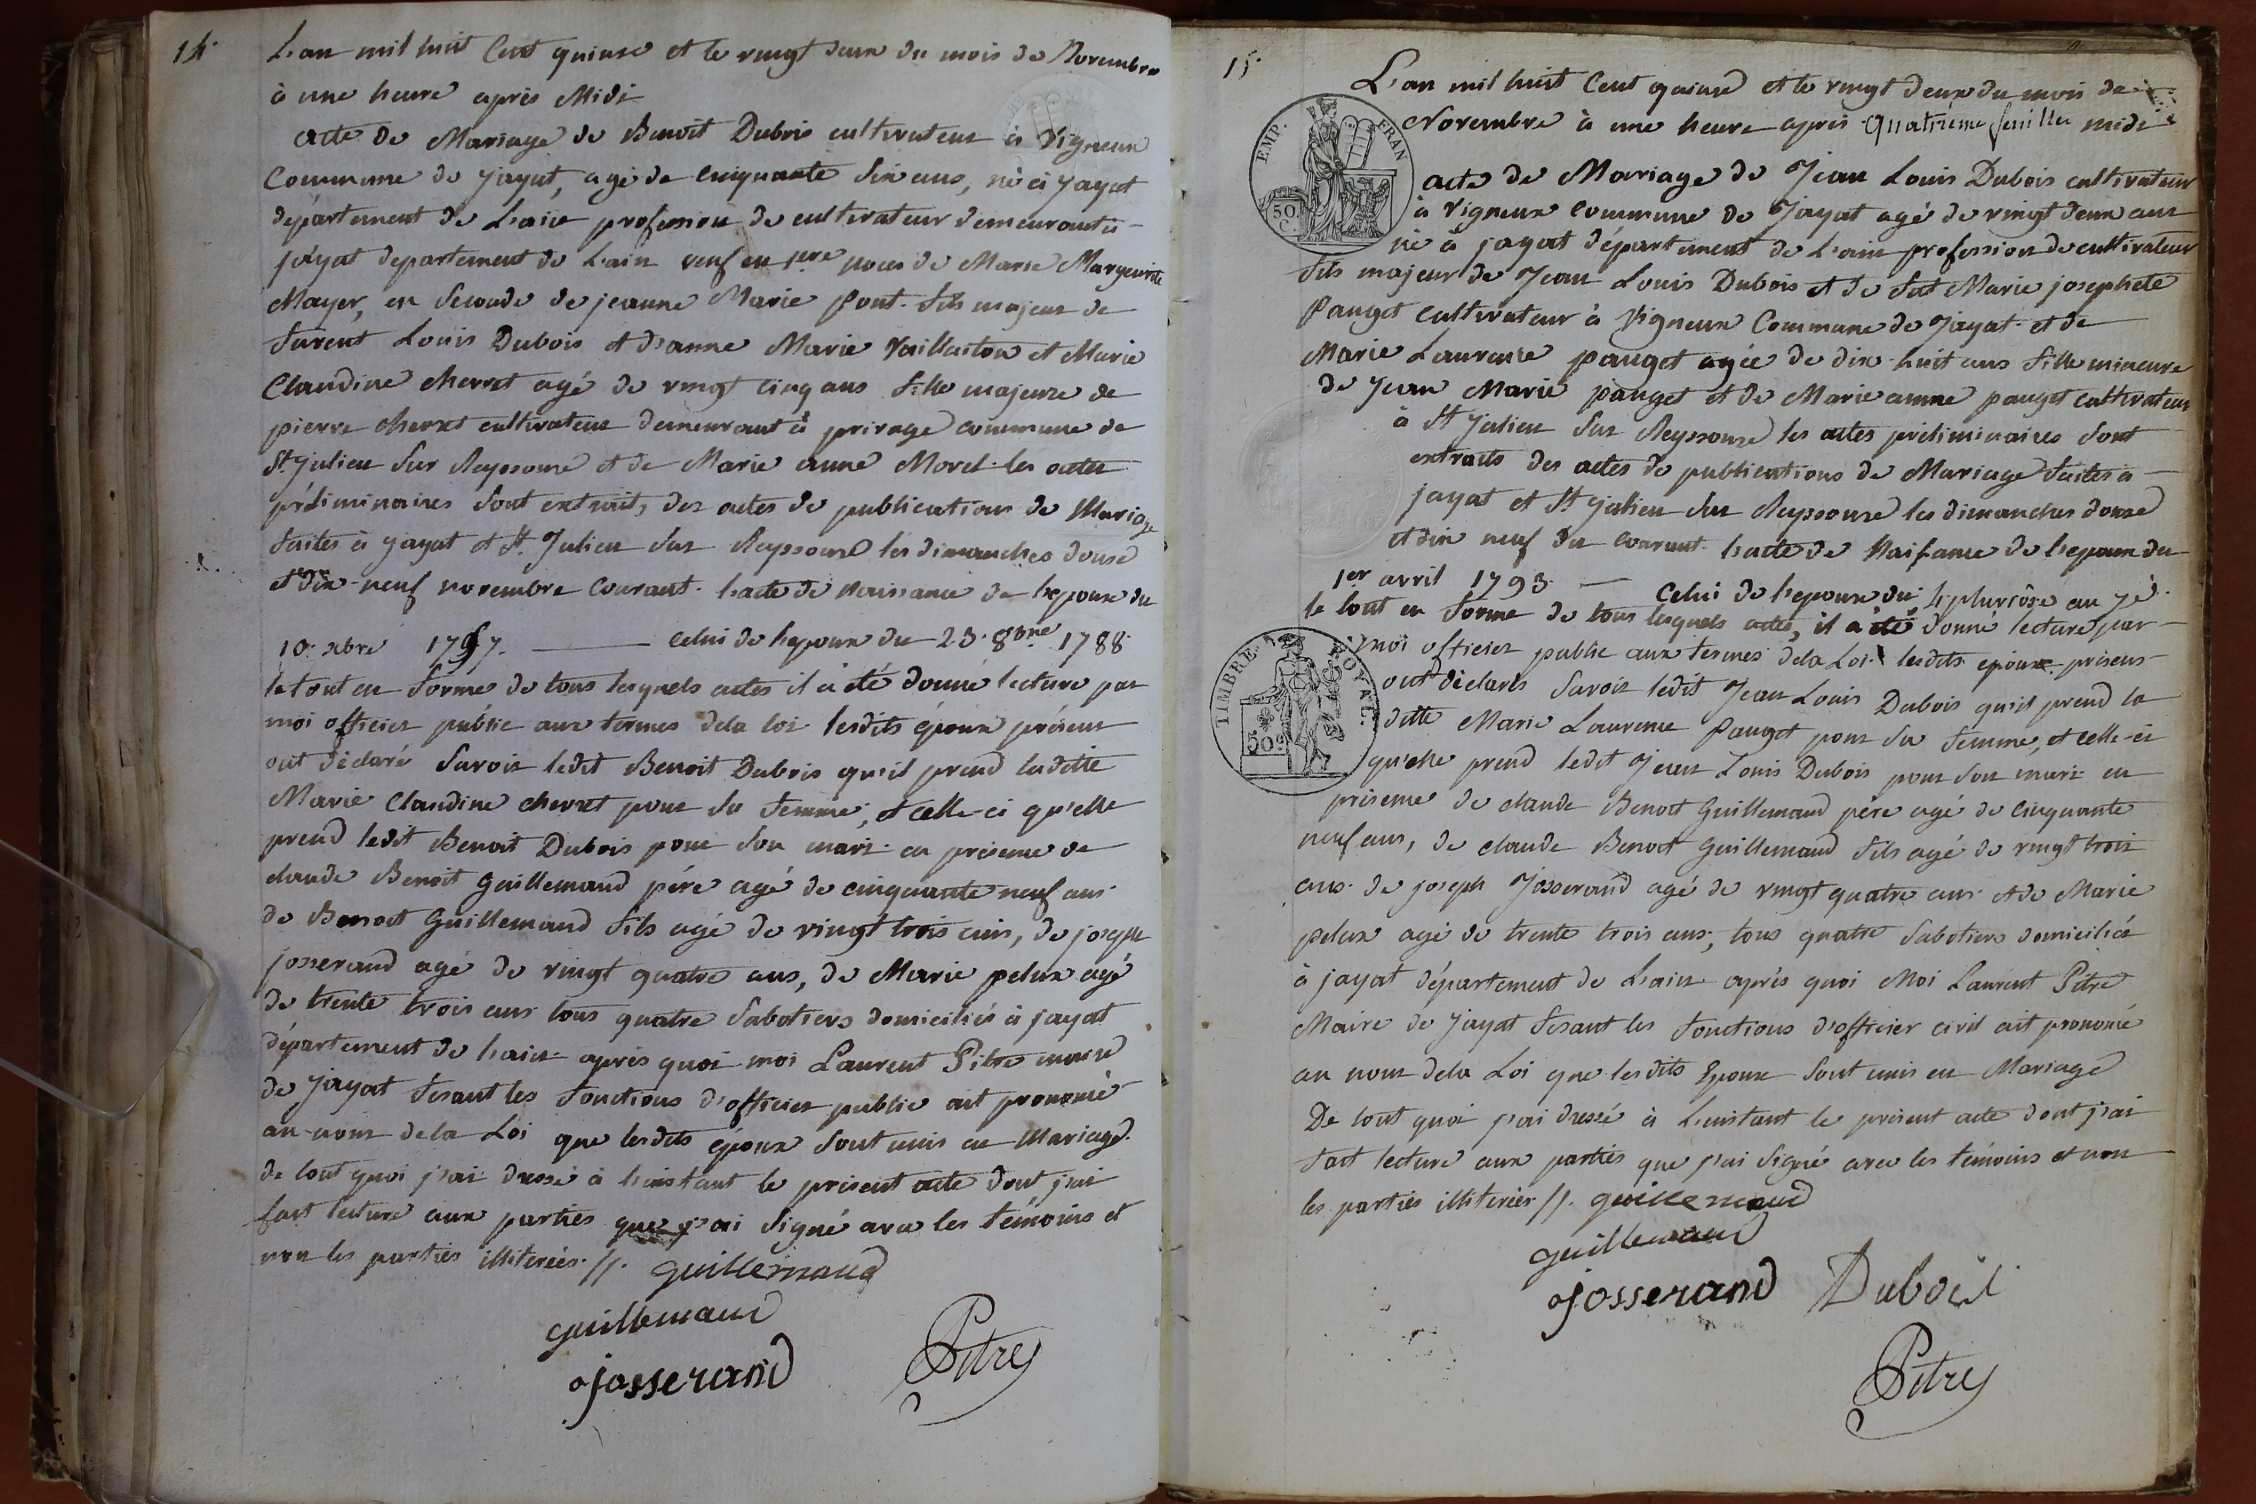 14.
L'an mil huit Cent quinze et le vingt deux du mois de Novembre
à une heure après Midi
acte de Mariage de Benoit Dubois cultivateur à Vigneux
Commune de Jayat, agé de cinquante six ans, né à Jayat
département de L'ain profession de cultivateur demeurant à
jayat departement de L'ain veuf en 1ere noces de Marie Margueritte
Mayer, en seconde de jeanne Marie Pont. fils majeur de
furent Louis Dubois et d'anne Marie Vaillaiton et Marie
Claudine chevret agé de vingt cinq ans fille majeure de
pierre chevret cultivateur demeurant à privage commune de
St julien sur Reyssouze et de Marie anne Morel. les actes
préliminaires sont extraits des actes de publications de Mariage
faites à jayat et St. Julien sur Reyssouze les dimanches douze
et dix-neuf novembre courant. l'acte de naissance de l'epoux du
10. xbre 1757. celui de l'epoux du 23. 8bre 1788.
le tout en forme de tous lesquels actes il a été donné lecture par
moi officier public aux termes de la loi lesdits époux présens
ont déclaré savoir ledit Benoit Dubois qu'il prend laditte
Marie Claudine chevret pour sa femme, et celle-ci qu'elle
prend ledit Benoit Dubois pour son mari en présence de
claude Benoit Guillemaud pére agé de cinquante neuf ans
de Benoit Guillemaud fils agé de vingt trois ans, de joseph
josserand agé de vingt quatre ans, de Marie pelux agé
de trente trois ans tous quatre sabotiers domiciliés à jayat
département de l'ain. après quoi moi Laurent Pitre maire
de Jayat fesant les fonctions d'officier public ait prononcé
au nom de la Loi que lesdits époux sont unis en Mariage.
de tout quoi j'ai dressé à l'instant le présent acte dont j'ai
fait lecture aux parties que j'ai signé avec les témoins et
non les parties illiterées. //. guillemaud
guillemaud
josserand Pitre
15.
L'an mil huit Cent quinze et le vingt deux du mois de
Novembre à une heure après Quatrième feuillet midi
EMP. FRAN
50 C.
acte de Mariage de Jean Louis Dubois cultivateur
à Vigneux commune de Jayat agé de vingt deux ans
né à jayat département de L'ain profession de cultivateur
fils majeur de Jean Louis Dubois et de fut Marie josephete
Pauget cultivateur à Vigneux Commune de Jayat. et de
Marie Laurence pauget agée de dix huit ans fille mineure
de Jean Marie pauget et de Marie anne pauget cultivateur
à St Julien sur Reyssouze les actes préliminaires sont
extraits des actes de publications de Mariage faites à
jayat et St julien sur Reyssouze les dimanches douze
et dix neuf du courant. l'acte de Naissance de l'epoux du
1er avril 1793. celui de l'epoux du 4 pluviôse an 7e.
le tout en forme de tous lesquels actes, il a été donné lecture par
TIMBRE ROYAL.
50c
moi officier public aux termes de la Loi. lesdits époux présens
ont déclarés savoir ledit Jean Louis Dubois qu'il prend la
ditte Marie Laurence Pauget pour sa femme, et celle-ci
qu'elle prend ledit Jean Louis Dubois pour son mari en
présence de claude Benoit Guillemaud pére agé de cinquante
neuf ans, de claude Benoit Guillemaud fils agé de vingt trois
ans. de joseph Josserand agé de vingt quatre ans et de Marie
pelux agé de trente trois ans, tous quatre sabotiers domiciliés
à jayat département de L'ain après quoi Moi Laurent Pitre
Maire de Jayat fesant les fonctions d'officier civil ait prononcé
au nom de la Loi que lesdits Epoux sont unis en Mariage
De tout quoi j'ai dressé à L'instant le présent acte dont j'ai
fait lecture aux parties que j'ai signé avec les témoins et non
les parties illiterées //. guillemaud
guillemaud
josserand Dubois
Pitre